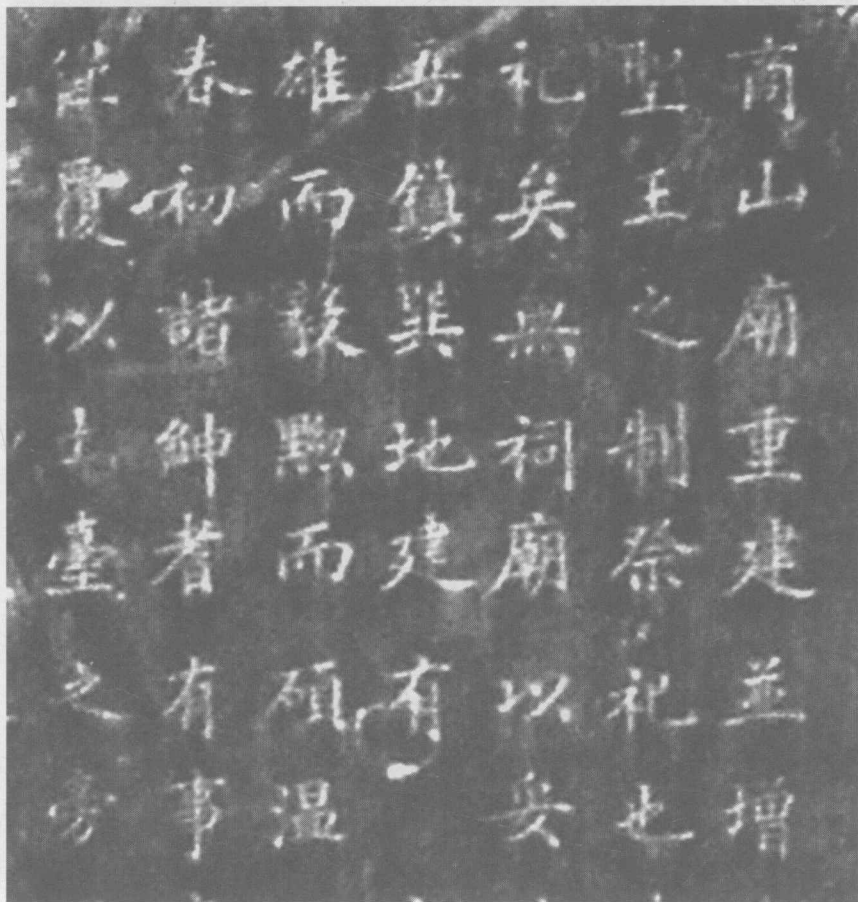 商山廟重建並增
聖王之制祭祀也
祀矣無祠廟以安
吾鎮巽地建有
雄而毅黝而碩温
春初諸紳者有事
覆以臺之旁